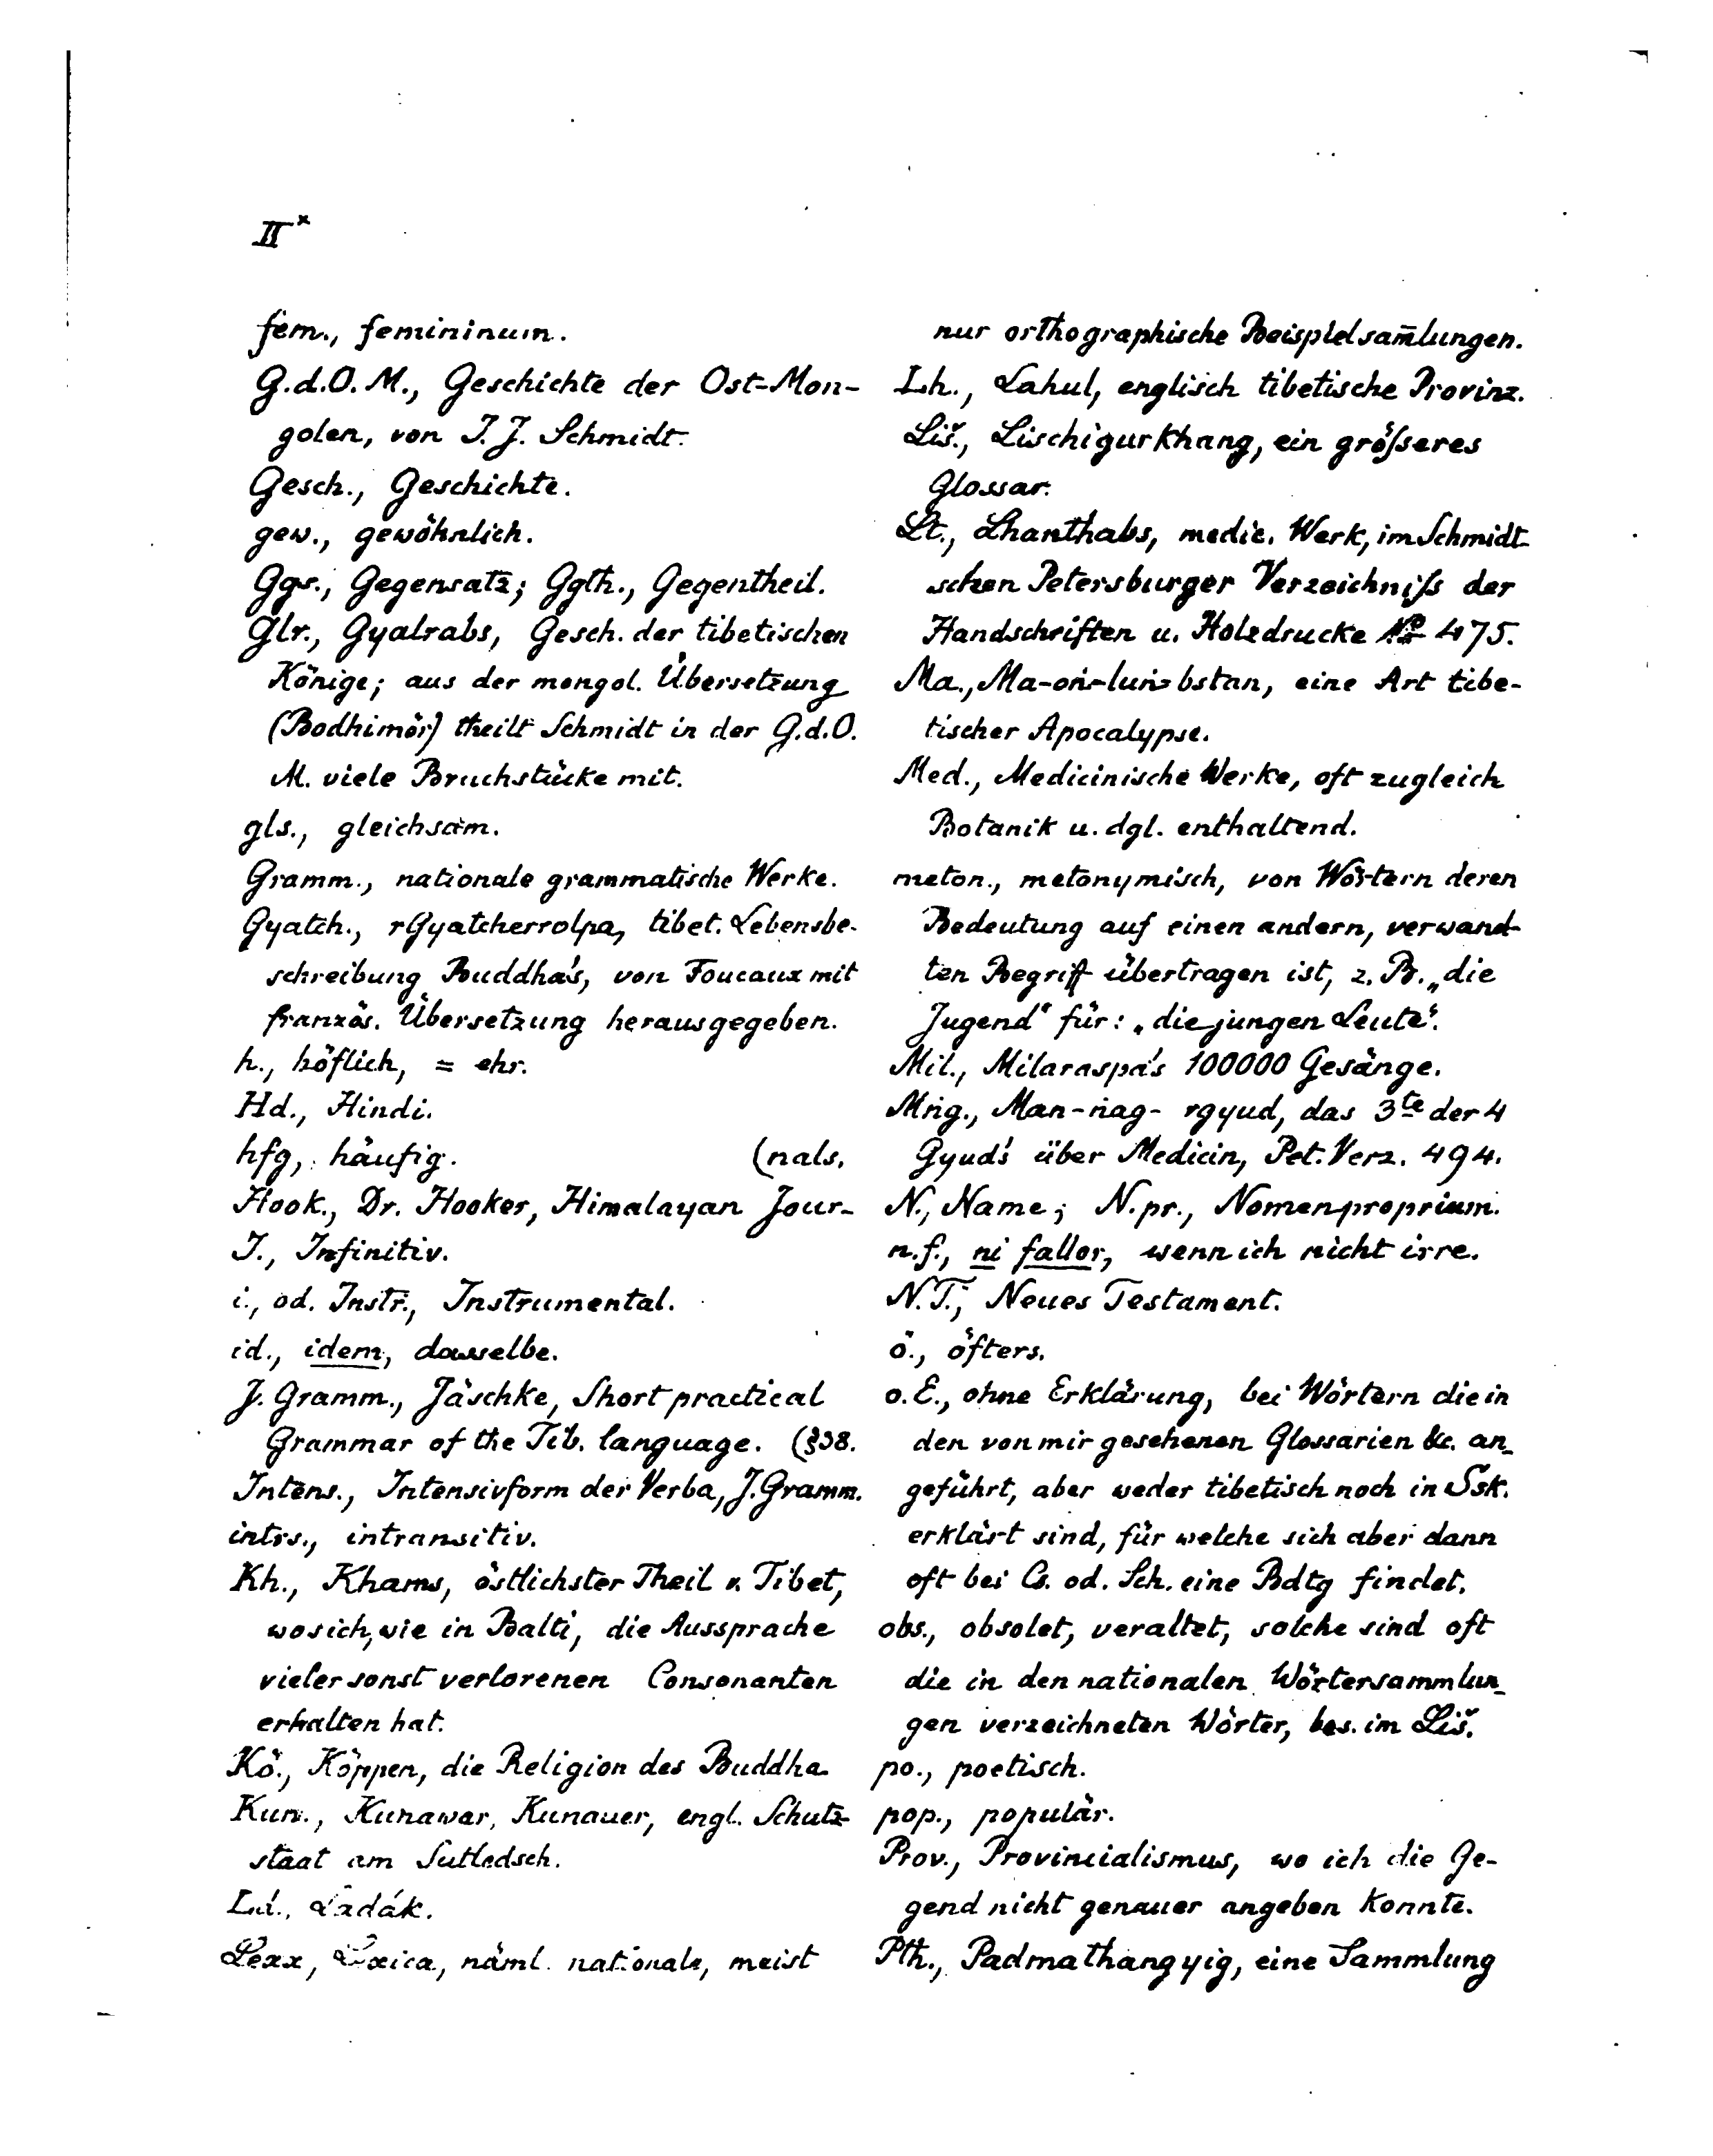 II*
fem., femininum.
G.d.O.M., Geschichte der Ost-Mon-
golen, von I. J. Schmidt.
Gesch., Geschichte.
gew., gewöhnlich.
Ggs., Gegensatz; Ggth., Gegentheil.
Glr., Gyalrabs, Gesch. der tibetischen
Könige; aus der mongol. Übersetzung
(Bodhimör) theilt Schmidt in der G.d.O.
M. viele Bruchstücke mit.
gls., gleichsam.
Gramm., nationale grammatische Werke.
Gyatch., rGyatcherrolpa, tibet. Lebensbe-
schreibung Buddha's, von Foucaux mit
französ. Übersetzung herausgegeben.
h., höflich, = ehr.
Hd., Hindi.
hfg, häufig. (nals.
Hook., Dr. Hooker, Himalayan Jour-
I., Infinitiv.
i., od. Instr., Instrumental.
id., idem, dasselbe.
J. Gramm., Jäschke, Short practical
Grammar of the Tib. language. (§38.
Intens., Intensivform der Verba, J. Gramm.
intrs., intransitiv.
Kh., Khams, östlichster Theil v. Tibet,
wo sich, wie in Balti, die Aussprache
vieler sonst verlorenen Consonanten
erhalten hat.
Kö., Köppen, die Religion des Buddha.
Kun., Kunawar, Kunauer, engl. Schutz-
staat am Sutledsch.
Ld., Ladák.
Lexx, Lexica, näml. nationale, meist
nur orthographische Beispielsam̄lungen.
Lh., Lahul, englisch tibetische Provinz.
Liš., Lischigurkhang, ein größeres
Glossar.
Lt., Lhanthabs, medic. Werk, im Schmidt-
schen Petersburger Verzeichniß der
Handschriften u. Holzdrucke No 475.
Ma., Ma-oṅ-luṅ-bstan, eine Art tibe-
tischer Apocalypse.
Med., Medicinische Werke, oft zugleich
Botanik u. dgl. enthaltend.
meton., metonymisch, von Wörtern deren
Bedeutung auf einen andern, verwand-
ten Begriff übertragen ist, z. B. „die
Jugend“ für: „die jungen Leute“.
Mil., Milaraspa's 100000 Gesänge.
Mṅg., Man-ṅag-rgyud, das 3te der 4
Gyud's über Medicin, Pet. Verz. 494.
N., Name; N.pr., Nomen proprium.
n.f., ni fallor, wenn ich nicht irre.
N.T., Neues Testament.
ö., öfters.
o.E., ohne Erklärung, bei Wörtern die in
den von mir gesehenen Glossarien &c. an-
geführt, aber weder tibetisch noch in Ssk.
erklärt sind, für welche sich aber dann
oft bei Cs. od. Sch. eine Bdtg findet.
obs., obsolet, veraltet, solche sind oft
die in den nationalen Wörtersammlun-
gen verzeichneten Wörter, bes. im Liš.
po., poetisch.
pop., populär.
Prov., Provincialismus, wo ich die Ge-
gend nicht genauer angeben konnte.
Pth., Padmathangyig, eine Sammlung